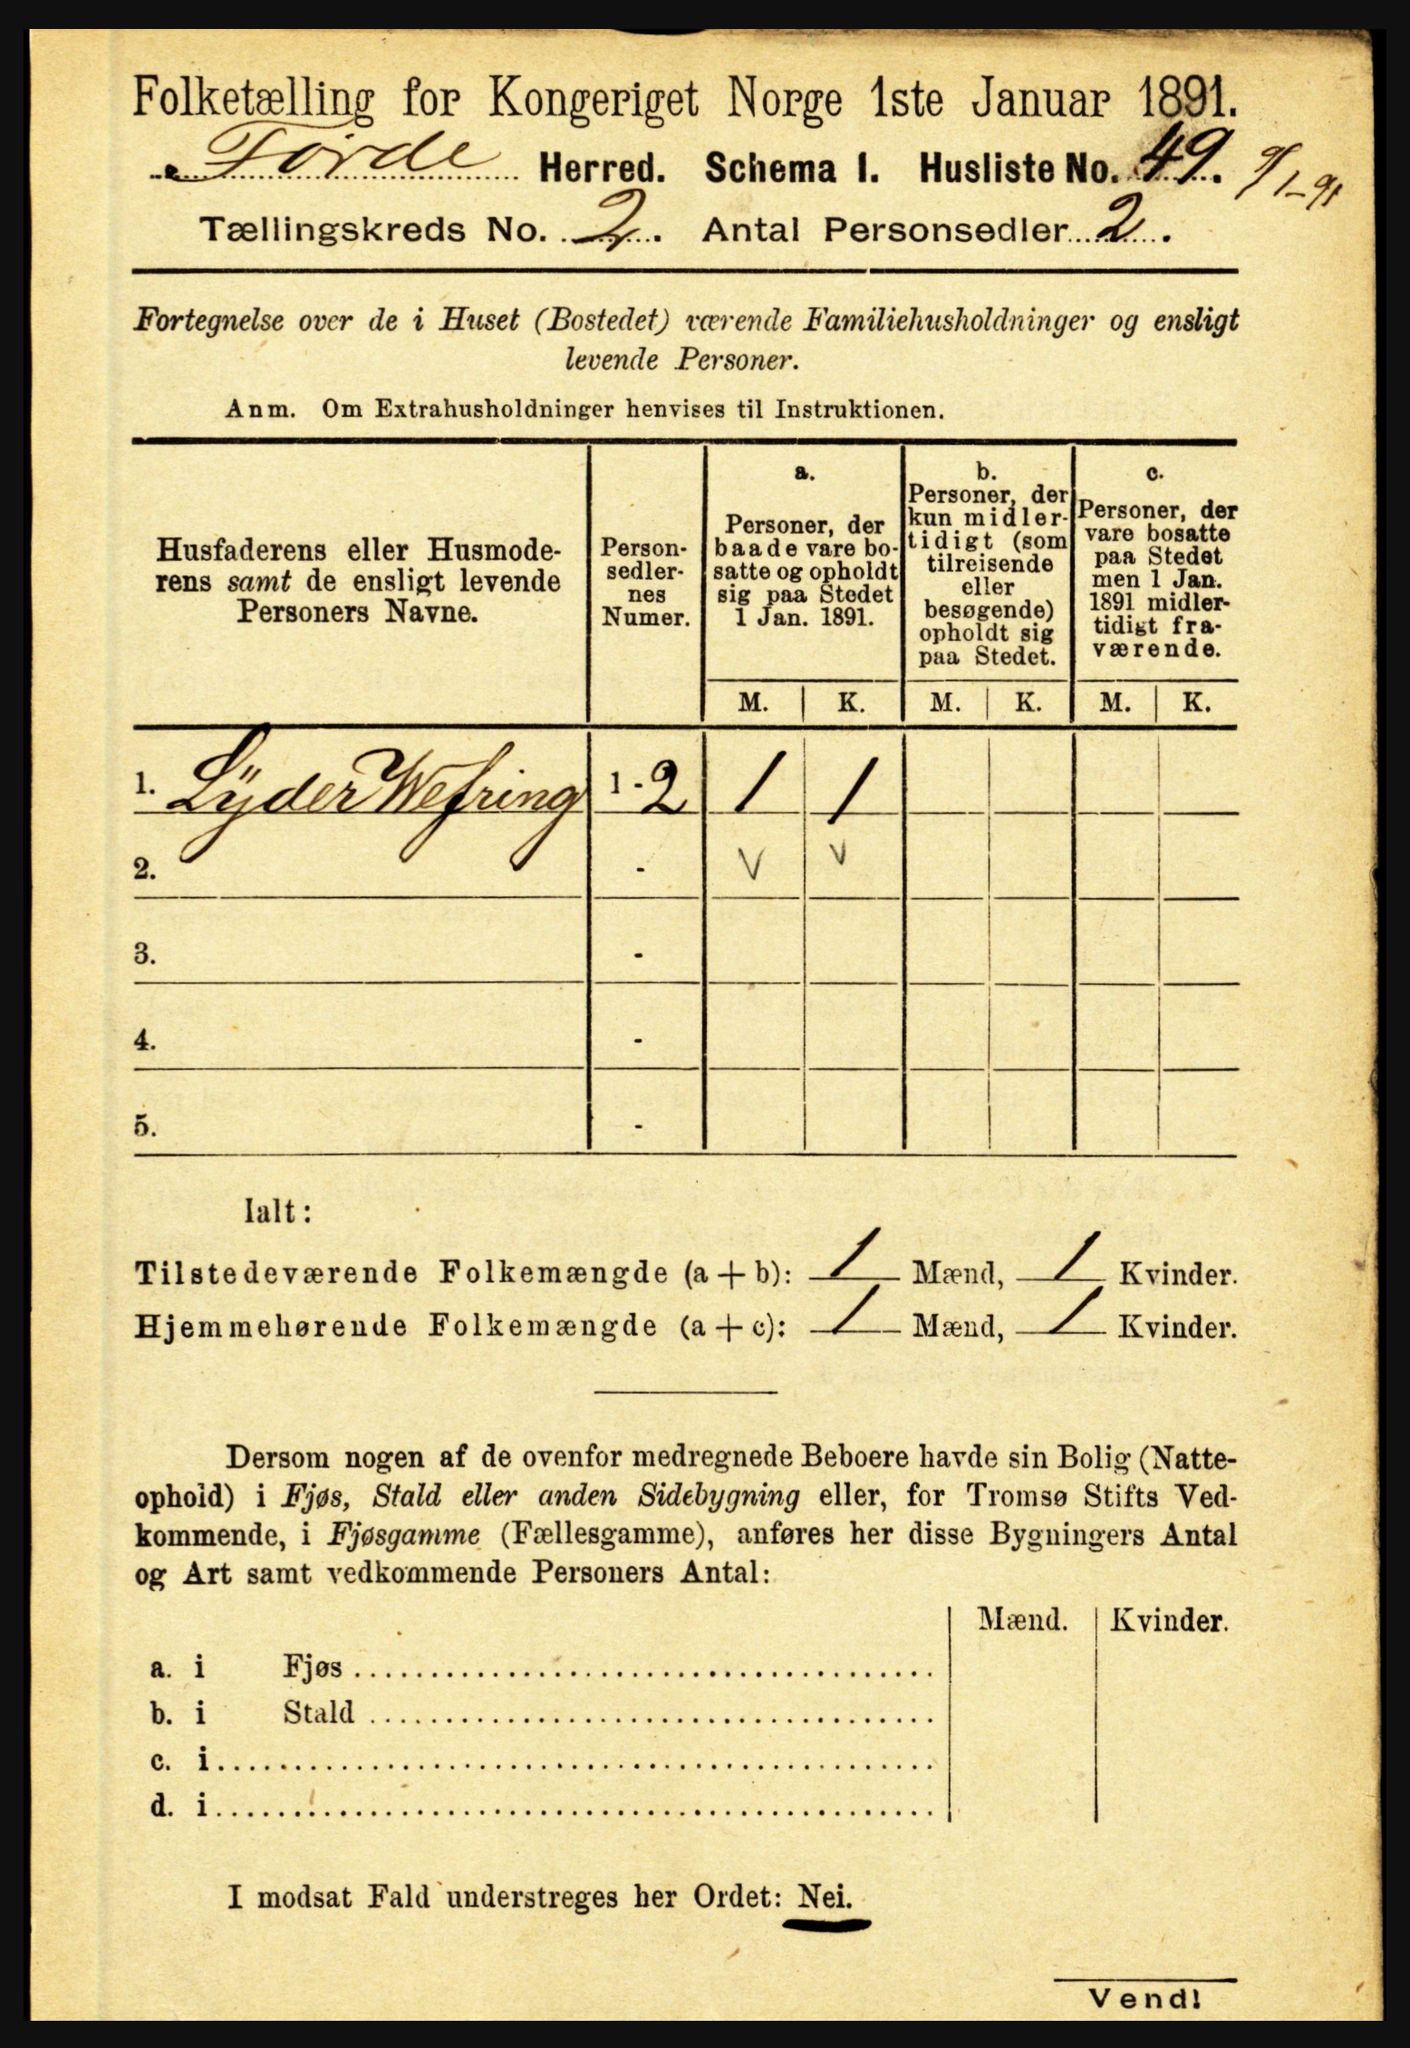 Folketælling for Kongeriget Norge 1ste Januar 1891.
Førde Herred. Schema I. Husliste No. 49. 9/1-91
Tællingskreds No. 2. Antal Personsedler 2.
Fortegnelse over de i Huset (Bostedet) værende Familiehusholdninger og ensligt
levende Personer.
Anm. Om Extrahusholdninger henvises til Instruktionen.
Husfaderens eller Husmode-
rens samt de ensligt levende
Personers Navne.
Person-
sedler-
nes
Numer.
a.
Personer, der
baade vare bo-
satte og opholdt
sig paa Stedet
1 Jan. 1891.
b.
Personer, der
kun midler-
tidigt (som
tilreisende
eller
besøgende)
opholdt sig
paa Stedet.
c.
Personer, der
vare bosatte
paa Stedet
men 1 Jan.
1891 midler-
tidigt fra-
værende.
M. K. M. K. M. K.
1. Lÿder Wefring 1 - 2 1 1
2. - v v
3. -
4. -
5. -
Ialt:
Tilstedeværende Folkemængde (a + b): 1 Mænd, 1 Kvinder.
Hjemmehørende Folkemængde (a + c): 1 Mænd, 1 Kvinder.
Dersom nogen af de ovenfor medregnede Beboere havde sin Bolig (Natte-
ophold) i Fjøs, Stald eller anden Sidebygning eller, for Tromsø Stifts Ved-
kommende, i Fjøsgamme (Fællesgamme), anføres her disse Bygningers Antal
og Art samt vedkommende Personers Antal:
Mænd. Kvinder.
a. i Fjøs
b. i Stald
c. i
d. i
I modsat Fald understreges her Ordet: Nei.
Vend!